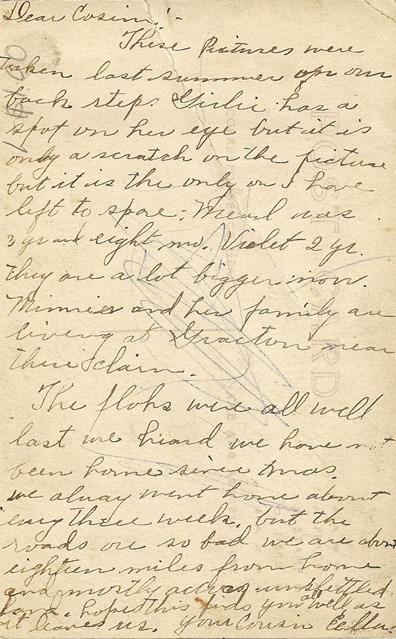 Dear Cosin:-
These Pictures were
taken last summer on our
back steps. Girlie has a
spot on her eye but it is
only a scratch on the picture
but it is the only on I have
left to spare: Mearl was
3 yr and eight mo. Violet 2 yr.
They are a lot bigger now.
Minnie and her family are
living at near
their claim.
The floks were all well
last we heard we have not
been home since Xmas
we alway went home about
evry three week. but the
roads are so bad we are about
eighteen miles from home
and mostly across unsettled
land. hope this finds you as well as
it leaves us. Your Cousn
POST CARD